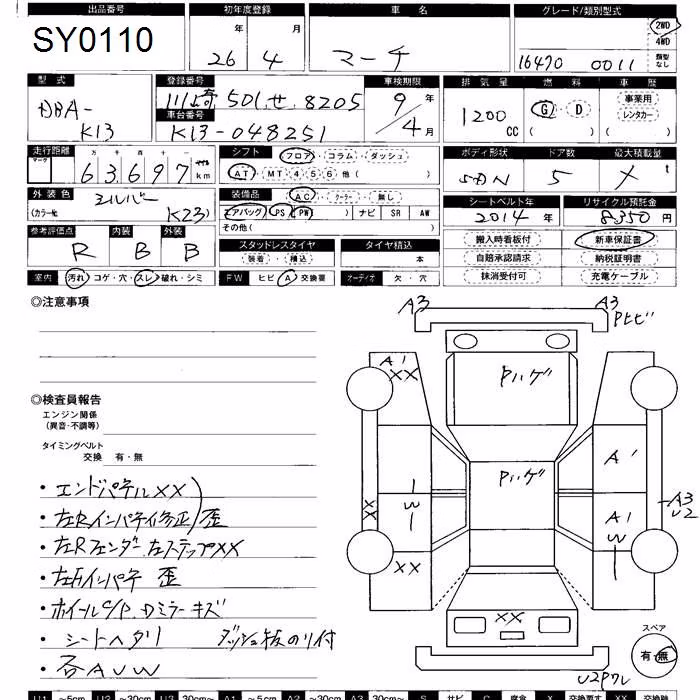 出品番号 初年度登録 車名 グレード/類別型式
SY0110 26年 4月 マーチ 16470 0011 2WD 4WD 類別なし
型式 登録番号 車検期限 排気量 燃料 車歴
DBA-K13 川崎 501 せ 8205 9年 4月 1200cc G D ( ) 事業用 レンタカー ( )
車台番号
K13-048251
走行距離 シフト フロア コラム ダッシュ ボディ形状 ドア数 最大積載量
マーク 十万 万 千 百 十 マイル
63697km AT MT 4 5 6 ( ) SDN 5 X t
外装色 装備品 AC クーラー 無し シートベルト年 リサイクル預託金
シルバー エアバッグ PS PW ( ) ナビ SR AW 2014年 8350円
(カラー№ K23) その他 ( )
参考評価点 内装 外装 スタッドレスタイヤ タイヤ積込 搬入時看板付 新車保証書
R B B 装着 積込 本 自賠承認請求 納税証明書
室内 汚れ コゲ・穴 スレ 破れ・シミ FW ヒビ A 交換要 オーディオ 欠・穴 抹消受付可 充電ケーブル
◎注意事項
A3 A3 Pヒビ
A' XX Pハゲ
◎検査員報告
エンジン関係
(異音・不調等)
タイミングベルト
交換 有・無
Pハゲ A'
・エンドパネルXX
W XX A' W A3 U2
・左Rインパネ修正/歪
・左Rフェンダー 左ステップXX
・左Fインパネ 歪
XX
・ホイールC/P、Dミラーキズ
XX
・シートヘタリ ダッシュ板のり付
スペア
有・無
・各AUW
U2Pワレ
U1 ~5cm U2 ~20cm U3 30cm~ A1 ~5cm A2 ~30cm A3 30cm~ S サビ C 腐食 X 交換要す XX 交換跡